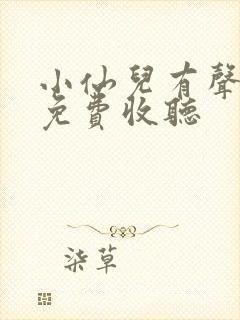 小仙兒有聲
免費收聽
柒草